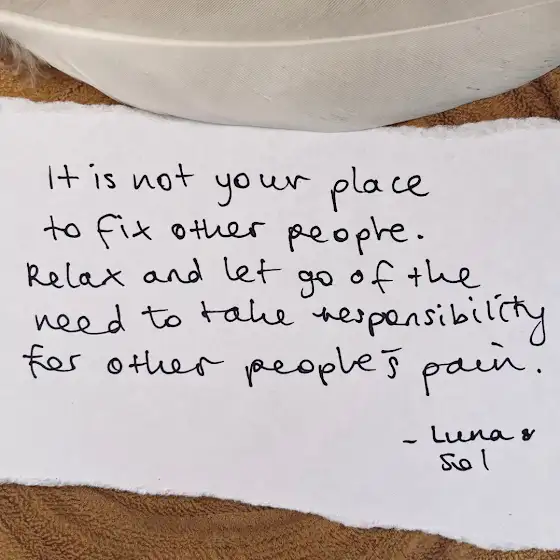 It is not your place
to fix other people.
Relax and let go of the
need to take responsibility
for other people's pain.
- Luna &
Sol